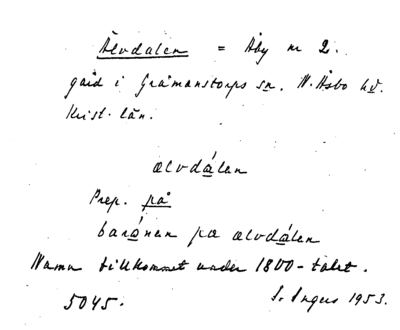 Älvdalen = Åby nr 2.
gård i Gråmanstorps sn. N. Åsbo hd.
Krist. län.
ælvdálen
Prep. på
barónen pæ ælvdálen
Namn tillkommet under 1800-talet.
5045. S. Ingers 1953.